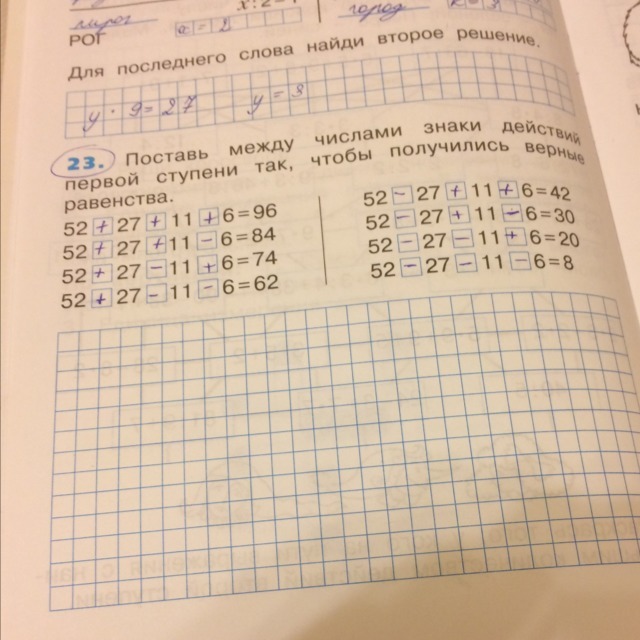 x:2=
пирог
город
РОГ
а = 2
Для последнего слова найди второе решение.
у · 9 = 27 у = 3
23. Поставь между числами знаки действий
первой ступени так, чтобы получились верные
равенства.
52 + 27 + 11 + 6 = 96
52 + 27 + 11 − 6 = 84
52 + 27 − 11 + 6 = 74
52 + 27 − 11 − 6 = 62
52 − 27 + 11 + 6 = 42
52 − 27 + 11 − 6 = 30
52 − 27 − 11 + 6 = 20
52 − 27 − 11 − 6 = 8